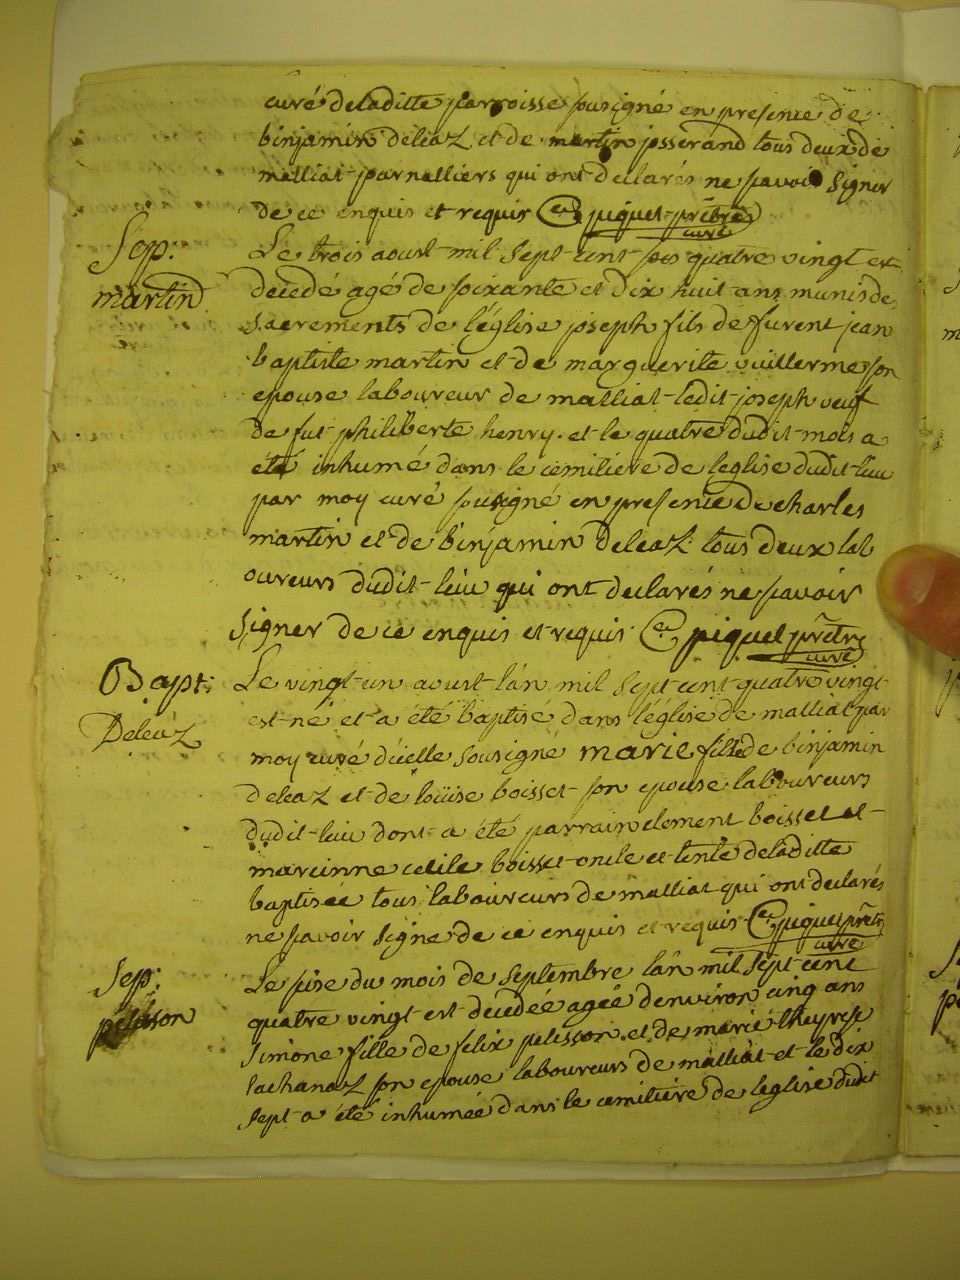 curé de laditte parroisse sousigné en presence de
binjamin deleaz et de martin josserand tous deux de
malliat parnalliers qui ont declarés ne savoir signer
de ce enquis et requis piquet prêtre
curé
Sep:
martin
Le trois aoust mil sept cent quatre vingt est
decedé agé de soixante et dix huit ans munis de
sacrements de l'église joseph fils de furent jean
baptiste martin et de marguerite vuillerme son
epouse laboureur de malliat ledit joseph veuf
de fut philiberte henry. et le quatre dudit mois a
été inhumé dans le cemitiere de leglise dudit lieu
par moy curé sousigné en presence de charles
martin et de binjamin deleaz tous deux lab
oureurs dudit lieu qui ont declarés ne savoir
signer de ce enquis et requis. piquet prêtre
curé
Bapt:
Deleaz
Le vingt un aoust l'an mil sept cent quatre vingt
est né et a été baptisé dans l'église de malliat par
moy curé d'icelle sousigné marie fille de binjamin
deleaz et de loüise boisset son epouse laboureurs
dudit lieu dont a été parrain clement boisset et
marcinne cecile boisset oncle et tente de laditte
baptisée tous laboureurs de malliat qui ont declarés
ne savoir signe de ce enquis et requis piquet prêtre
curé
Sep:
pelisson
Le sise du mois de septembre l'an mil sept cent
quatre vingt est decedée agée d'environ cinq ans
simone fille de felix pelisson. et de marie theyrese
lachanaz son epouse laboureurs de malliat et le dix
sept a été inhumée dans le cemitiére de leglise dudit